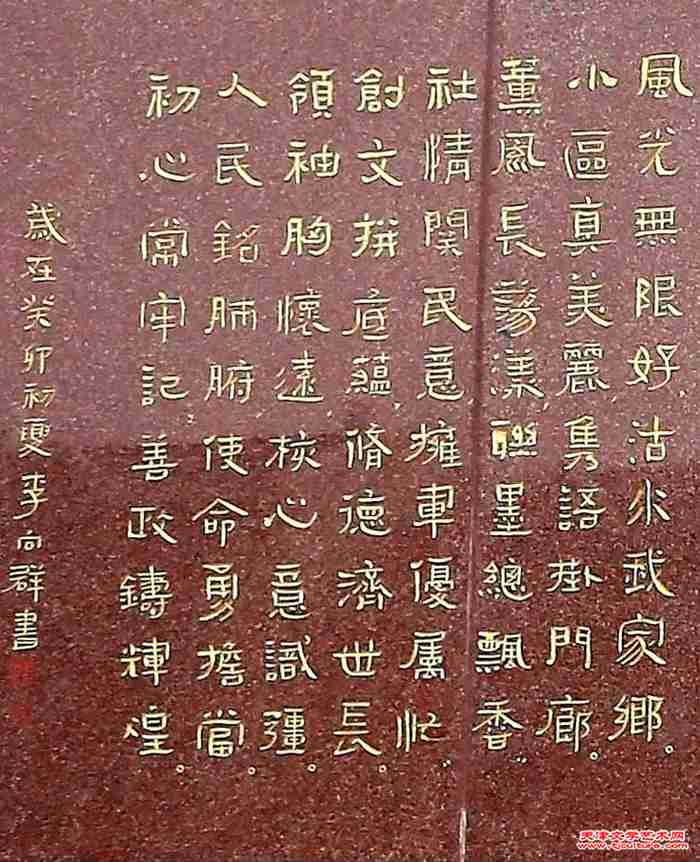 風光無限好沽水我家鄉。
小區真美麗，雋語掛門廊。
薰風長蕩漾，聯墨總飄香。
社情関民意，擁軍優属忙。
創文拼底蘊，脩德濟世長。
領袖胸懷遠，核心意識彊。
人民銘肺腑，使命勇擔當。
初心常牢記，善政鑄輝煌。
歲在癸卯初夏李向群書
天津文学艺术网
www.tjculture.com